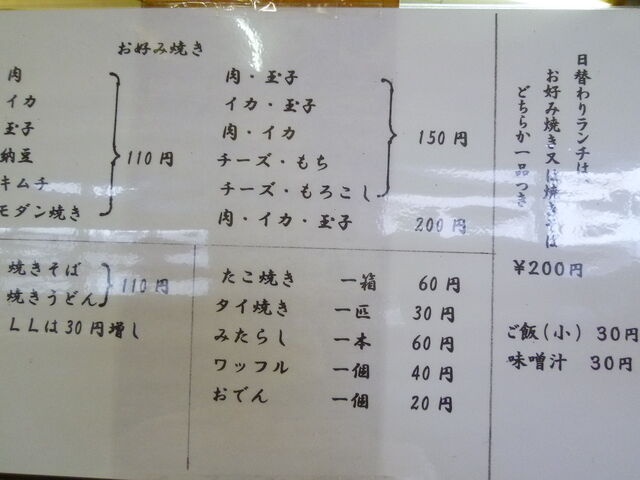 お好み焼き
肉
イカ
玉子
納豆
キムチ
モダン焼き
110円
肉・玉子
イカ・玉子
肉・イカ
チーズ・もち
チーズ・もろこし
150円
肉・イカ・玉子 200円
焼きそば
焼きうどん
110円
LLは30円増し
たこ焼き 一箱 60円
タイ焼き 一匹 30円
みたらし 一本 60円
ワッフル 一個 40円
おでん 一個 20円
日替わりランチは、
お好み焼き又は焼きそば
どちらか一品つき
¥200円
ご飯(小) 30円
味噌汁 30円